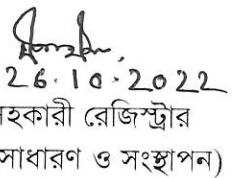 26.10.2022
হকারী রেজিস্ট্রার
সাধারণ ও সংস্থাপন)